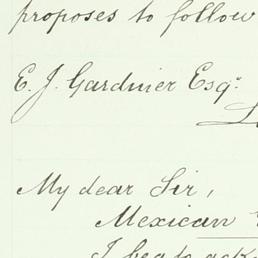 proposes to follow
E. J. Gardner Esqr.
My dear Sir,
Mexican
I beg to ack